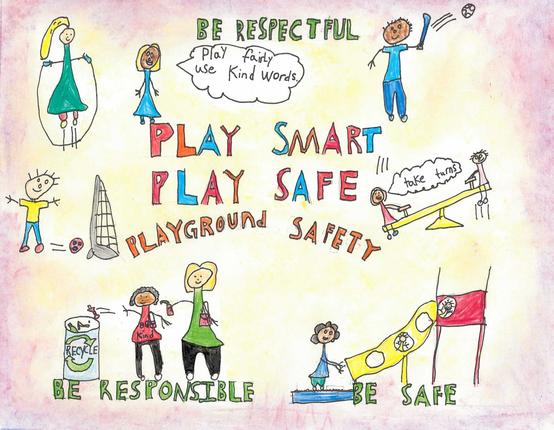 BE RESPECTFUL
Play fairly
use Kind words.
PLAY SMART
PLAY SAFE
take turns
PLAYGROUND SAFETY
Be
Kind
RECYCLE
BE RESPONSIBLE
BE SAFE